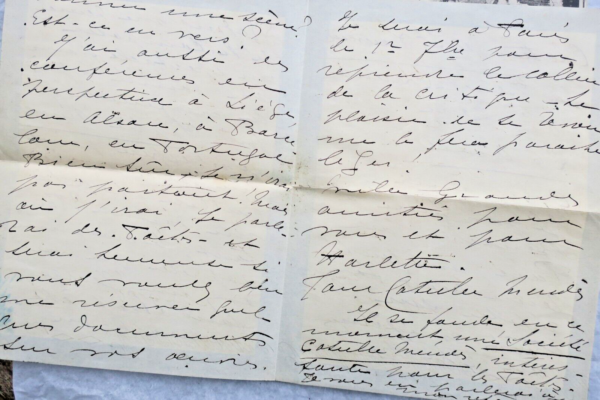 donner une scène?
Est-ce en vers?
J'ai aussi des
conférences en
Perspective à Liège
en Alsace, à Barce
lone, en Portugal
Bien sûr je n'irai
pas partout, mais
où j'irai, je parle
rai des Poètes - et
serai heureuse si
vous voulez bien
me réserver quel
ques documents
sur vos œuvres.
Je serai à Paris
le 1er 7bre pour
reprendre le collier
de la critique - Le
plaisir de se revoir
me le fera paraître
léger,
amitiés pour
vous et pour
Jane Catulle Mendès
Il se fonde en ce
moment une Société
Catulle Mendès, intéres-
sante pour les Poètes